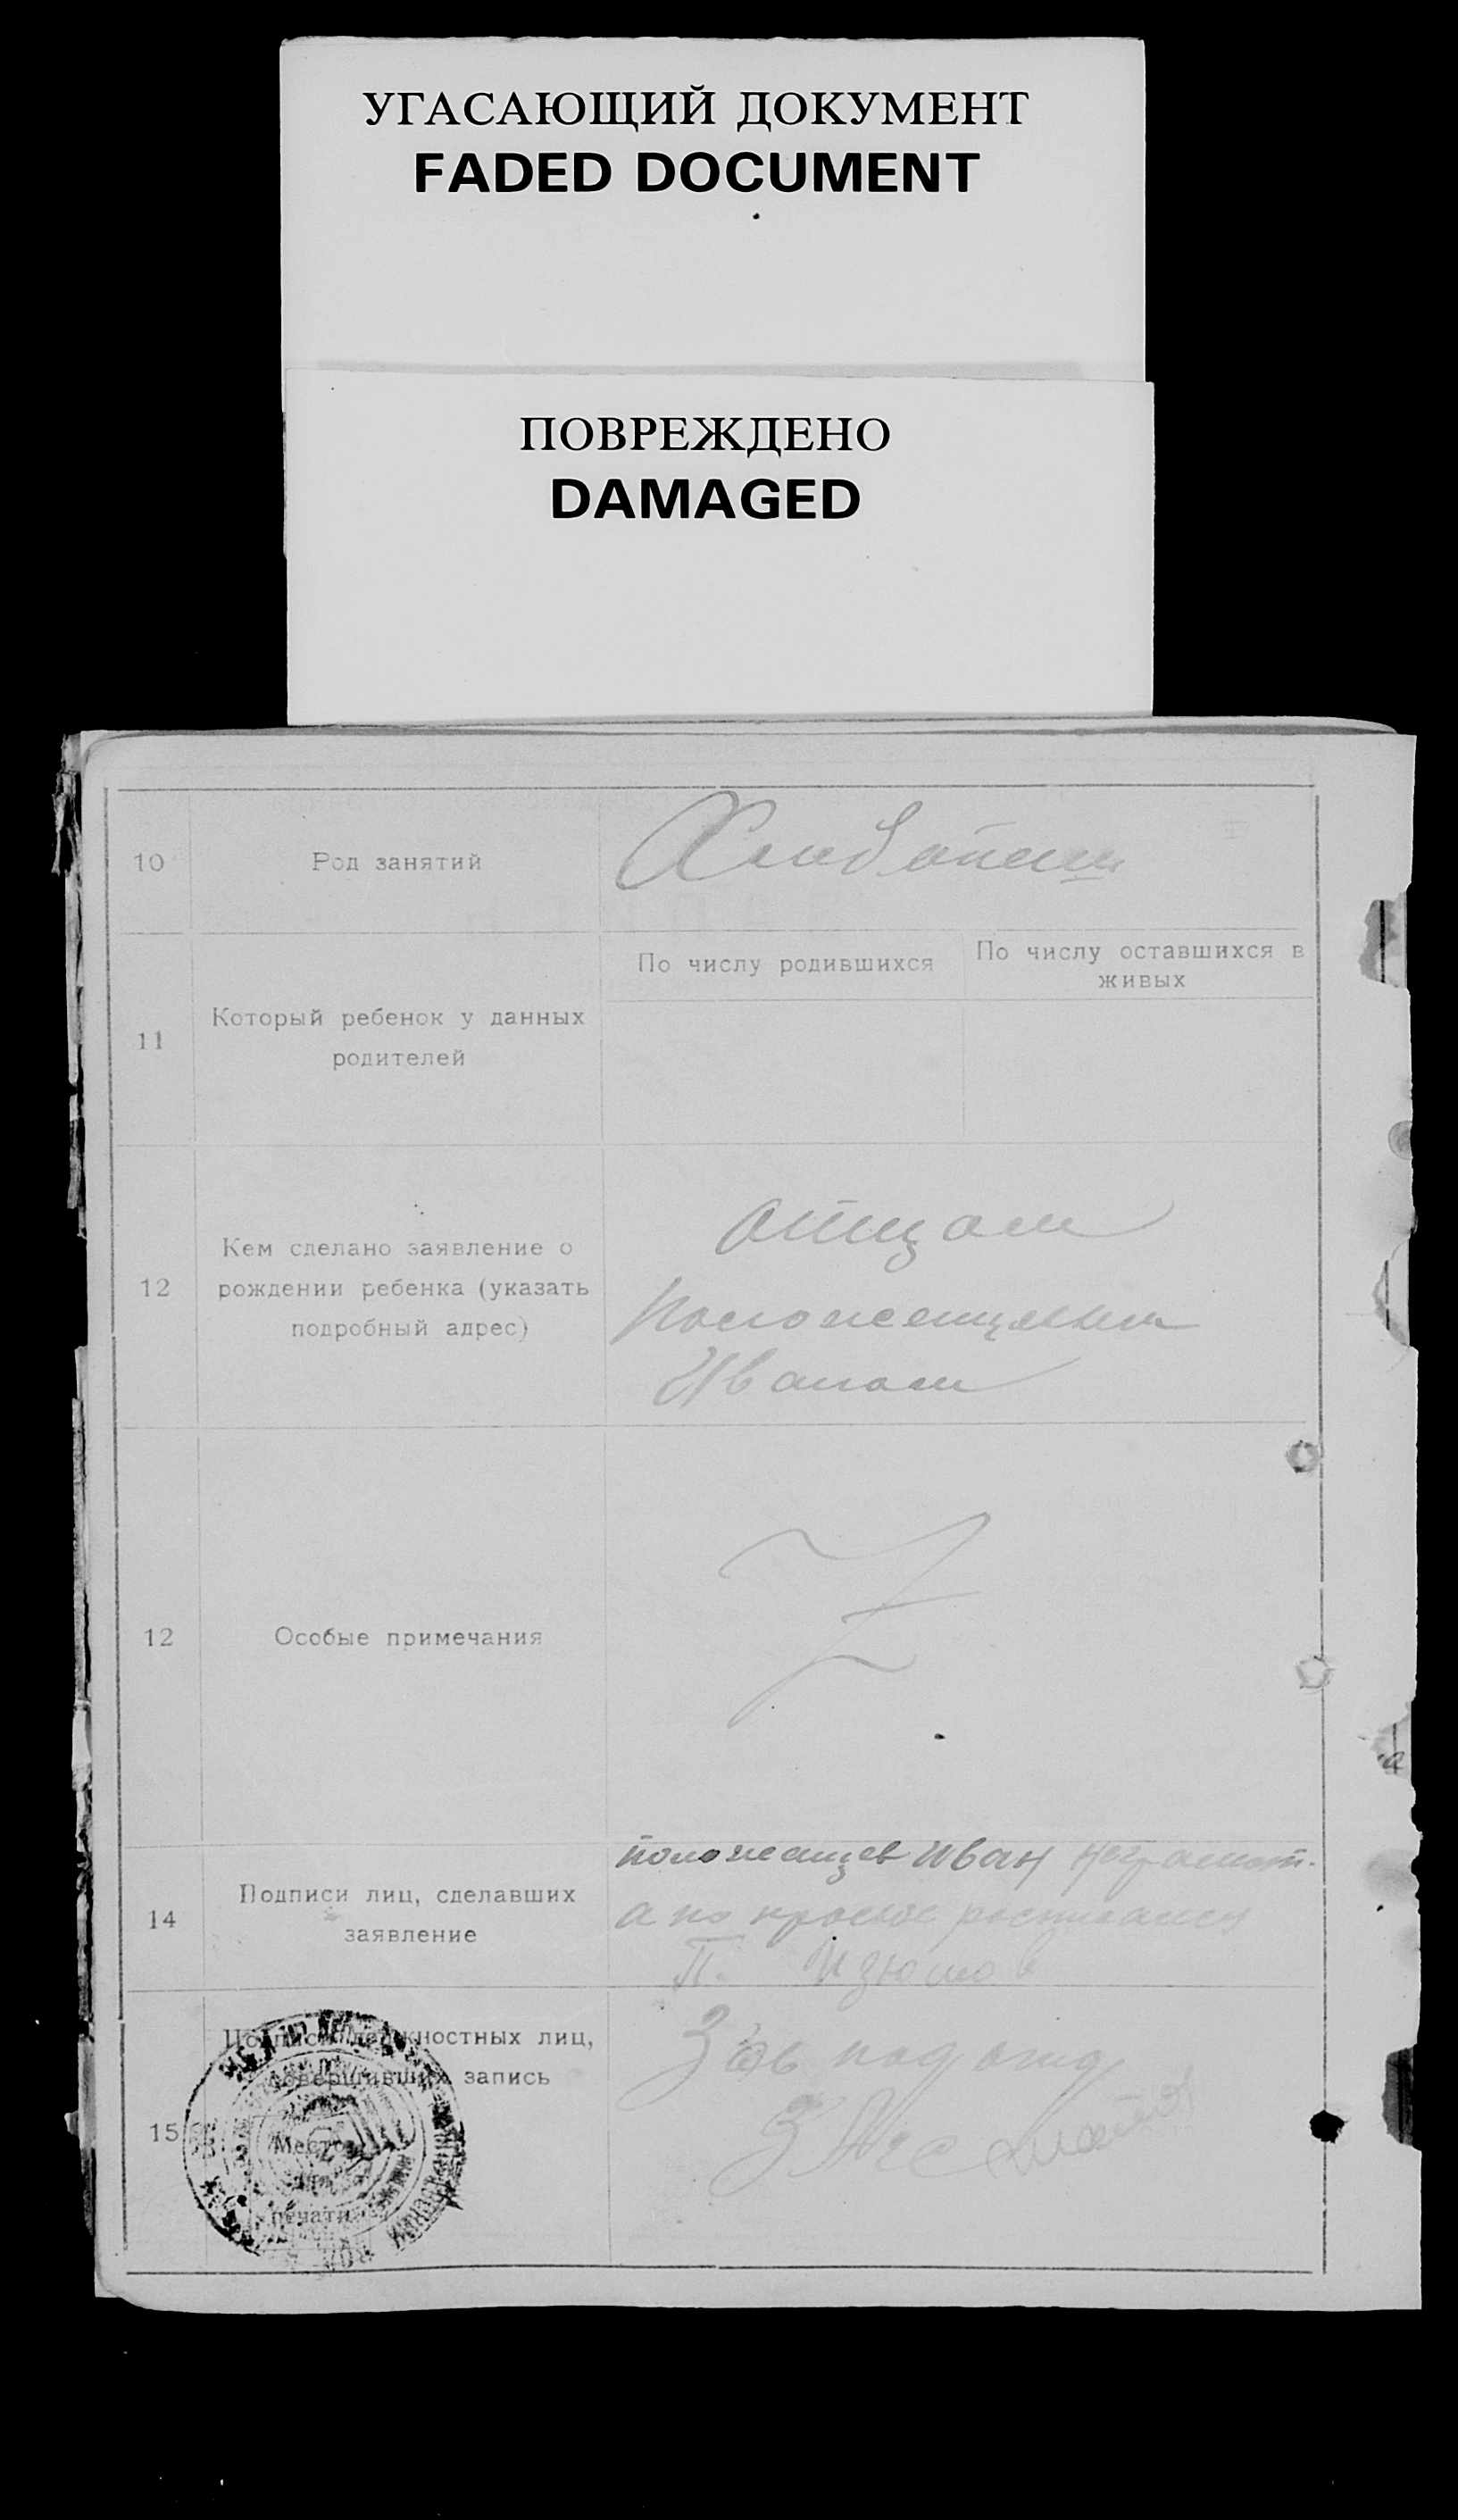 УГАСАЮЩИЙ ДОКУМЕНТ
FADED DOCUMENT
ПОВРЕЖДЕНО
DAMAGED
10
Род занятий
По числу родившихся
По числу оставшихся в
живых
11
Который ребенок у данных
родителей
12
Кем сделано заявление о
рождении ребенка (указать
подробный адрес)
отцом
Иваном
12
Особые примечания
14
Подписи лиц, сделавших
заявление
Положенцев Иван неграмот.
а по
П. Изюмов
15
Подписи должностных лиц,
совершивших запись
Место
печати
Зав